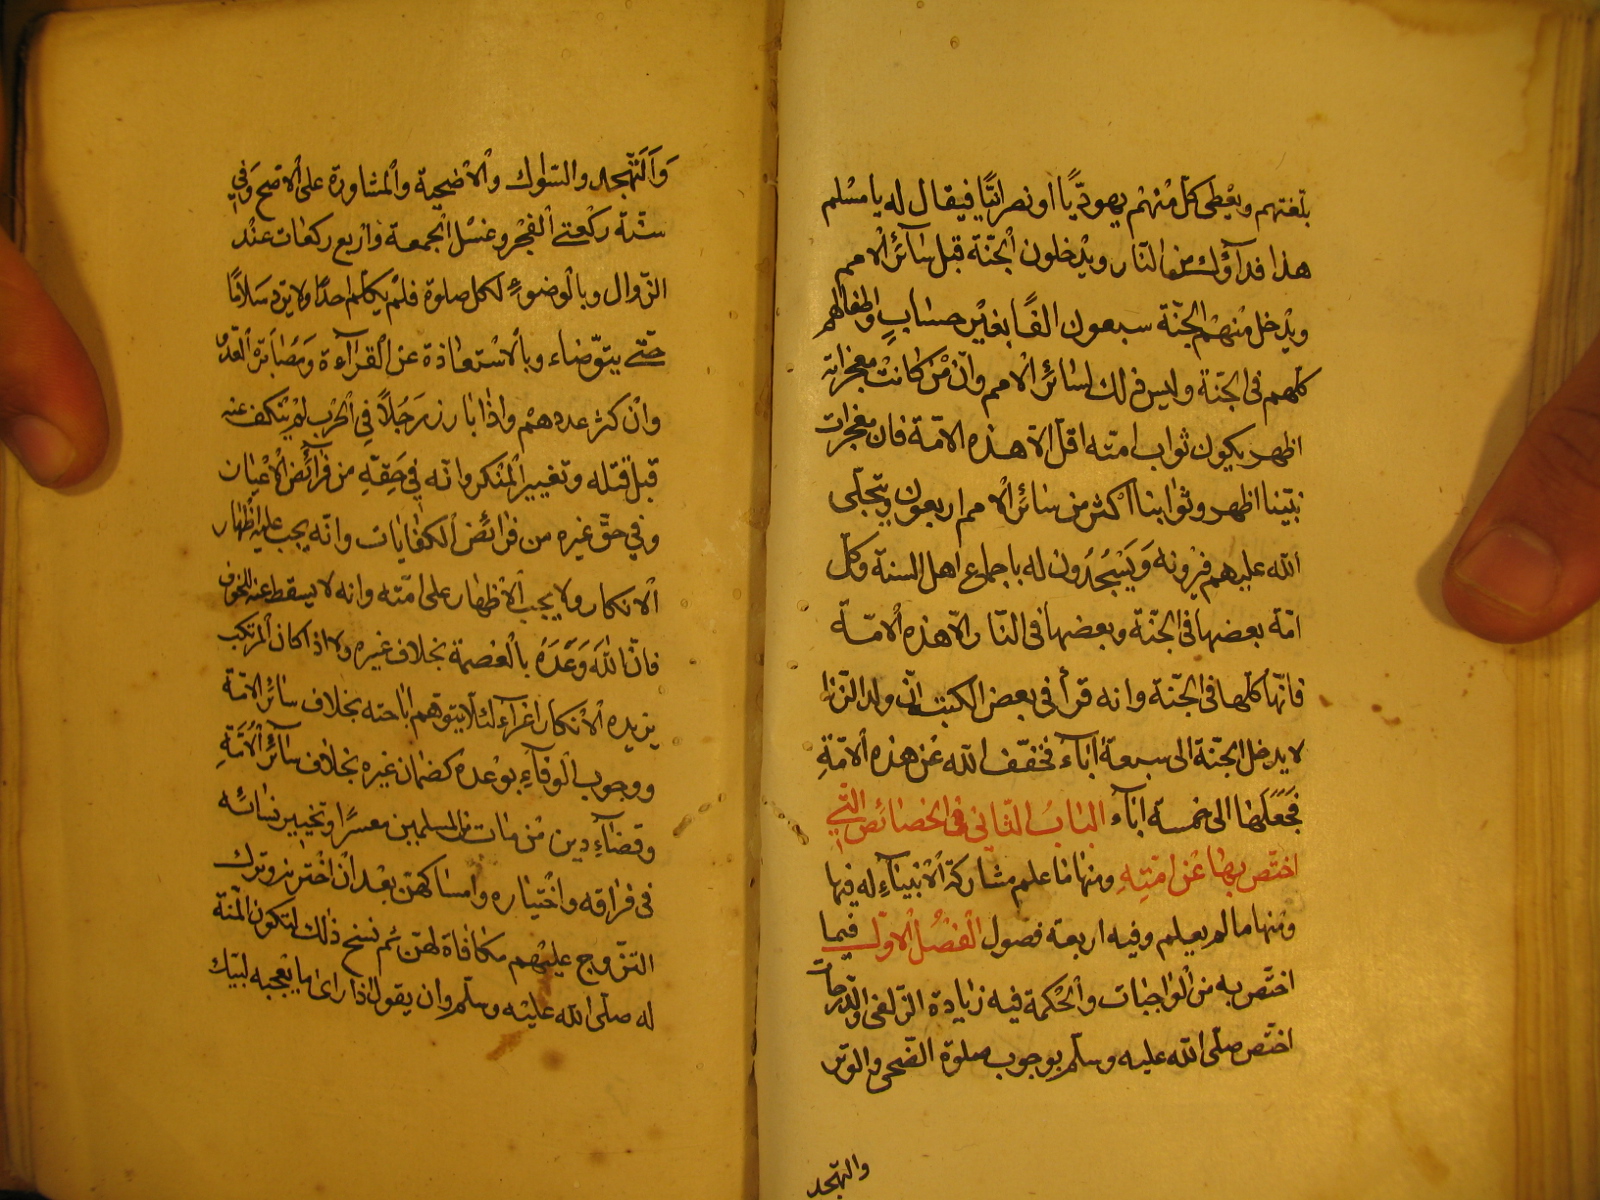 بلغتهم ويعطى كل منهم يهوديًا او نصرانيًا فيقال له يا مسلم
هذا فداؤك من النار ويدخلون الجنّة قبل سائر الامم
ويدخل منهم الجنّة سبعون الفًا بغير حساب واطفالهم
كلهم فى الجنة وليس ذلك لسائر الامم وانّ من كانت معجزاته
اظهر يكون ثواب امته اقل الا هذه الامّة فان معجزات
نبيّنا اظهر وثوابنا اكثر من سائر الامم اربعون ويتجلّى
الله عليهم فيرونه وَيَسْجُدُون له باجماع اهل السنة وكلّ
امّة بعضها فى الجنّة وبعضها فى النّار الّا هذه الامّة
فانّها كلها فى الجنّة وانه قرأ فى بعض الكتب انّ ولد الزنا
لا يدخل الجنّة الى سبعة اباء فخفّف الله عن هذه الامّةِ
فجعلها الى خمسة اباء الباب الثّانى فى الخصائص الّتى
اختصّ بها عن امّتِهِ ومنها ما علم مشاركة الانبياء له فيها
ومنها ما لم يعلم وفيه اربعة فصول الفصل الاوّل فيما
اختصّ به من الواجبات والحكمة فيه زيادة الزّلفى والدّرجات
اختصّ صلّى الله عليه وسلّم بوجوب صلوة الضّحى والوتر
والتّهجد
وَالتّهجد والسّواك والاضحية والمشاورة على الاصح وفى
سنّة ركعتى الفجر وغسل الجمعة واربع ركعات عند
الزّوال وبالوضوء لكل صلوة فلم يكلّم احدًا ولا يردّ سلامًا
حتّى يتوّضاء وبالاستعاذة عن القراءة ومصابرة العدوّ
وان كثر عددهم واذا بارز رجُلاً فى الحرب لم ينكف عنه
قبل قتله وتغيير المنكر وانّه فى حقّه من فرائض الاعيان
وفى حقّ غيره من فرائض الكفايات وانّه يجب عليه اظهار
الانكار ولا يجب الاظهار على امّته وانه لا يسقط عنه للخوف
فانّ اللهَ وَعَدَهُ بالعصمة بخلاف غيره ولا اذا كان المرتكب
يزيده الانكار اغراء لئلّا يتوهم اباحته بخلاف سائر الامّة
ووجوب الوفاءِ بوعده كضمان غيره بخلاف سائر الامّةِ
وقضاء دين من مات من المسلمين معسرًا وتخيير نسائه
فى فراقه واختياره وامساكهنّ بعد ان اخترنه وترك
التزوج عليهم مكافاة لهنّ ثم نسخ ذلك لتكون المنّة
له صلّى الله عليه وسلّم وان يقول اذا راى ما يعجبه لبّيك